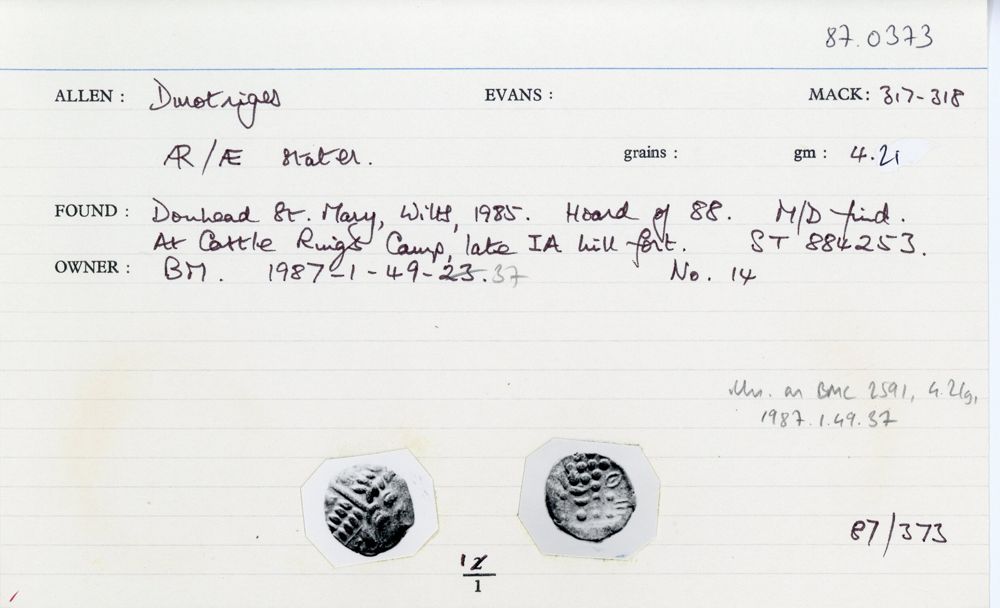 87.0373
ALLEN : Durotriges EVANS : MACK: 317-318
AR/Æ stater. grains : gm : 4.21
FOUND : Donhead St. Mary, Wilts, 1985. Hoard of 88. M/D find.
At Castle Rings Camp, late IA hill-fort. ST 884253.
OWNER : BM. 1987-1-49-23.37 No. 14
illus. as BMC 2591, 4.21g,
1987.1.49.37
87/373
12
1